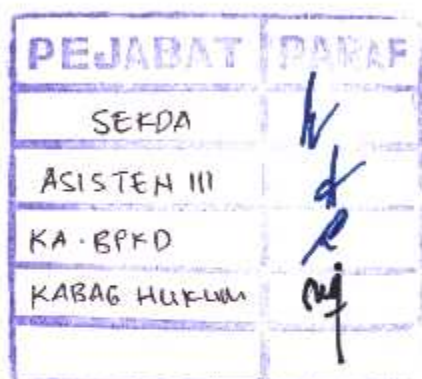 PEJABAT PARAF
SEKDA
ASISTEN III
KA. BPKD
KABAG HUKUM